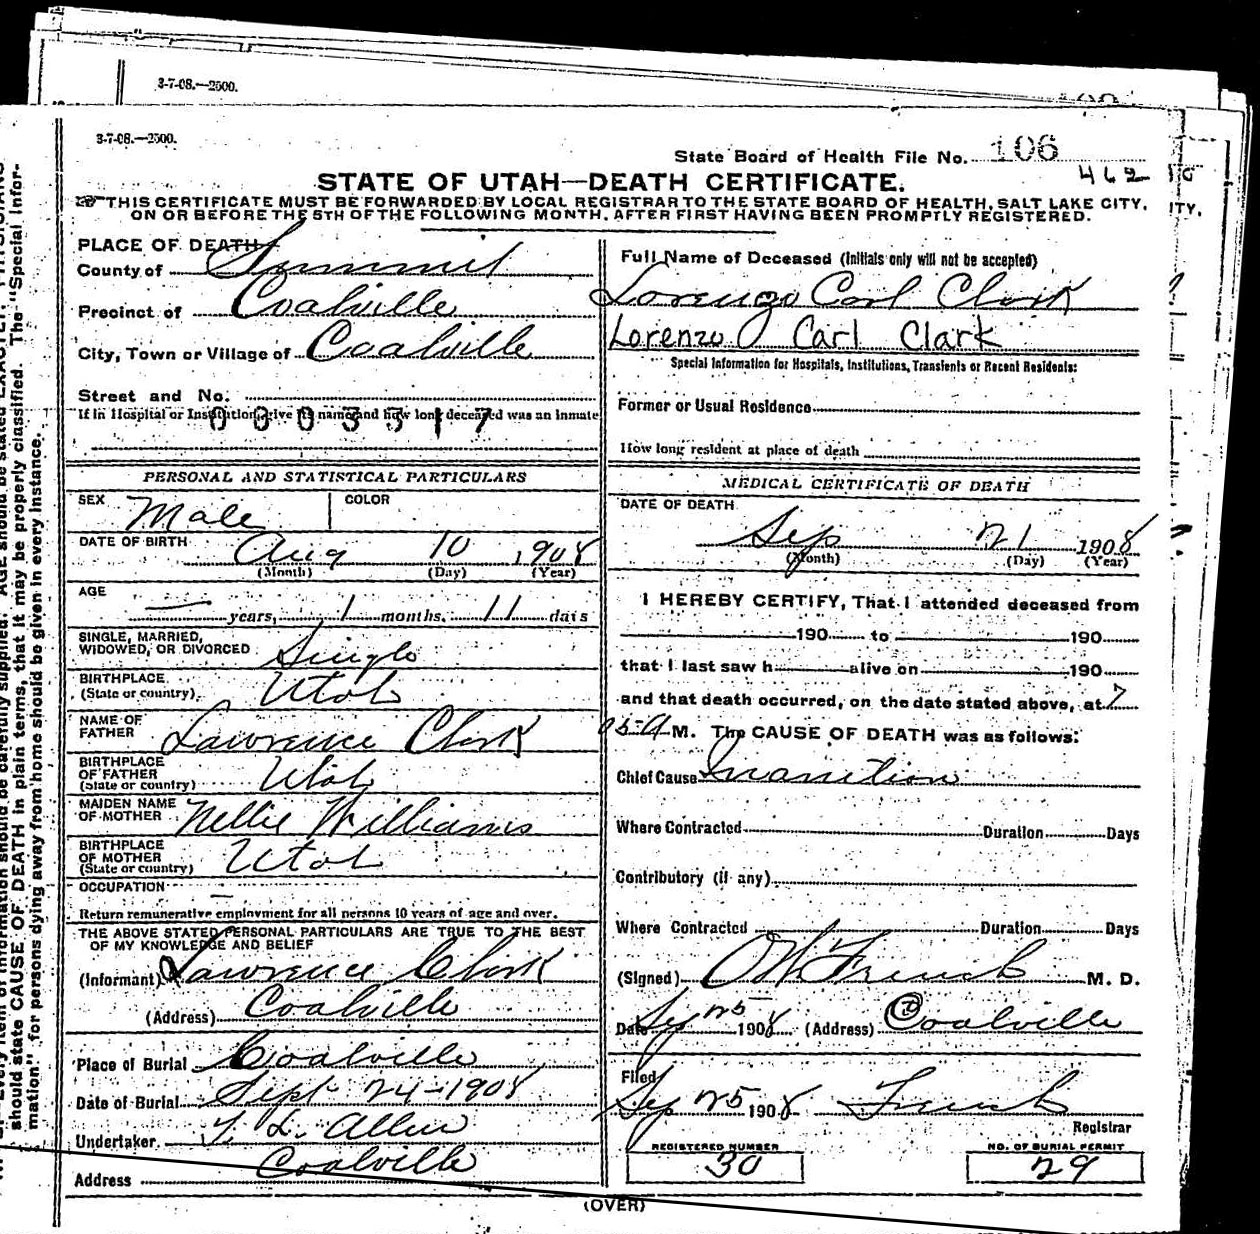 3-7-08.—2500.
3-7-08.—2500.
State Board of Health File No. 106
462
STATE OF UTAH—DEATH CERTIFICATE.
THIS CERTIFICATE MUST BE FORWARDED BY LOCAL REGISTRAR TO THE STATE BOARD OF HEALTH, SALT LAKE CITY,
ON OR BEFORE THE 5TH OF THE FOLLOWING MONTH, AFTER FIRST HAVING BEEN PROMPTLY REGISTERED.
PLACE OF DEATH
County of Summit
Precinct of Coalville
City, Town or Village of Coalville
Street and No.
If in Hospital or Institution, give its name and how long deceased was an inmate
0003517
PERSONAL AND STATISTICAL PARTICULARS
SEX Male COLOR
DATE OF BIRTH Aug 10, 1908
(Month) (Day) (Year)
AGE
— years, 1 months, 11 days
SINGLE, MARRIED,
WIDOWED, OR DIVORCED Single
BIRTHPLACE
(State or country) Utah
NAME OF
FATHER Lawrence Clark
BIRTHPLACE
OF FATHER
(State or country) Utah
MAIDEN NAME
OF MOTHER Nellie Williams
BIRTHPLACE
OF MOTHER
(State or country) Utah
OCCUPATION –
Return remunerative employment for all persons 10 years of age and over.
THE ABOVE STATED PERSONAL PARTICULARS ARE TRUE TO THE BEST
OF MY KNOWLEDGE AND BELIEF
(Informant) Lawrence Clark
(Address) Coalville
Place of Burial Coalville
Date of Burial Sept 24-1908
Undertaker T. L. Allen
Address Coalville
Full Name of Deceased (Initials only will not be accepted)
Lorenzo Carl Clark
Lorenzo Carl Clark
Special Information for Hospitals, Institutions, Transients or Recent Residents:
Former or Usual Residence
How long resident at place of death
MEDICAL CERTIFICATE OF DEATH
DATE OF DEATH
Sep 21 1908
(Month) (Day) (Year)
I HEREBY CERTIFY, That I attended deceased from
190 to 190
that I last saw h alive on 190
and that death occurred, on the date stated above, at 7
05 A M. The CAUSE OF DEATH was as follows:
Chief Cause Inanition
Where Contracted Duration Days
Contributory (if any)
Where Contracted Duration Days
(Signed) French M. D.
Date Sep 25 1908 (Address) Coalville
Filed
Sep 25 1908 French
Registrar
REGISTERED NUMBER
30
NO. OF BURIAL PERMIT
29
(OVER)
should state CAUSE OF DEATH in plain terms, that it may be properly classified. The "Special Infor-
mation" for persons dying away from home should be given in every instance.